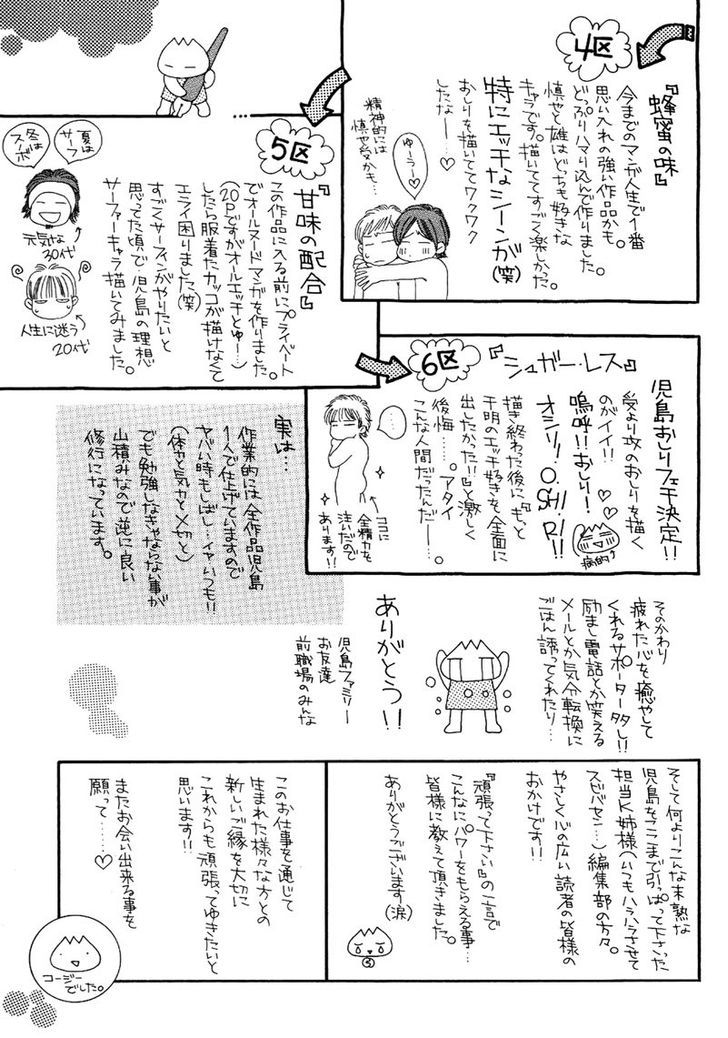 4区
『蜂蜜の味』
今までのマンガ人生で1番
思い入れの強い作品かも。
どっぷりハマり込んで作りました。
慎也と雄はどっちも好きな
キャラです。描いててすごく楽しかった。
特にエッチなシーンが(笑)
おしりを描いててワクワク
したなー♡
ゆーうー♡
精神的には
慎也受かも…
5区
『甘味の配合』
この作品に入る前にプライベート
でオールヌードマンガを作りました。
(20Pですがオールエッチとゆー…)
したら服着たカッコが描けなくて
エライ困りました(笑)
すごくサーフィンがやりたいと
思ってた頃で、児島の理想
サーファーキャラ描いてみました。
夏は
サーフ
冬は
スノボ
元気な
30代
人生に迷う
20代
6区
『シュガー・レス』
児島おしりフェチ決定!!
受より攻のおしりを描く
のがイイ!!♡♡
嗚呼!!おしり!
オシリ!O.
SHI.
RI!!
病的
描き終わった後に『もっと
千明のエッチ好きを全面に
出したかった!!』と激しく
後悔……。アタイ
こんな人間だったんだー…。
……
ココに
全精力を
注いだので
あります!!
実は…
作業的には全作品児島
1人で仕上げていますので
ヤバい時もしばし…イヤいつも!!
(体力と気力と〆切と)
でも勉強しなきゃならない事が
山積みなので逆に良い
修行になっています。
そのかわり
疲れた心を癒やして
くれるサポーター多し!!
励まし電話とか笑える
メールとか気分転換に
ごはん誘ってくれたり…
ありがとう!!
児島ファミリー
お友達
前職場のみんな
そして何よりこんな未熟な
児島をここまで引っぱって下さった
担当K姉様(いつもハラハラさせて
スビバセン…)編集部の方々。
やさしく心の広い読者の皆様の
おかげです!!
『頑張って下さい』の一言で
こんなにパワーをもらえる事…
皆様に教えて頂きました。
ありがとうございます(涙)
このお仕事を通じて
生まれた様々な方との
新しいご縁を大切に
これからも頑張ってゆきたいと
思います!!
またお会い出来る事を
願って……♡
コージー
でした。